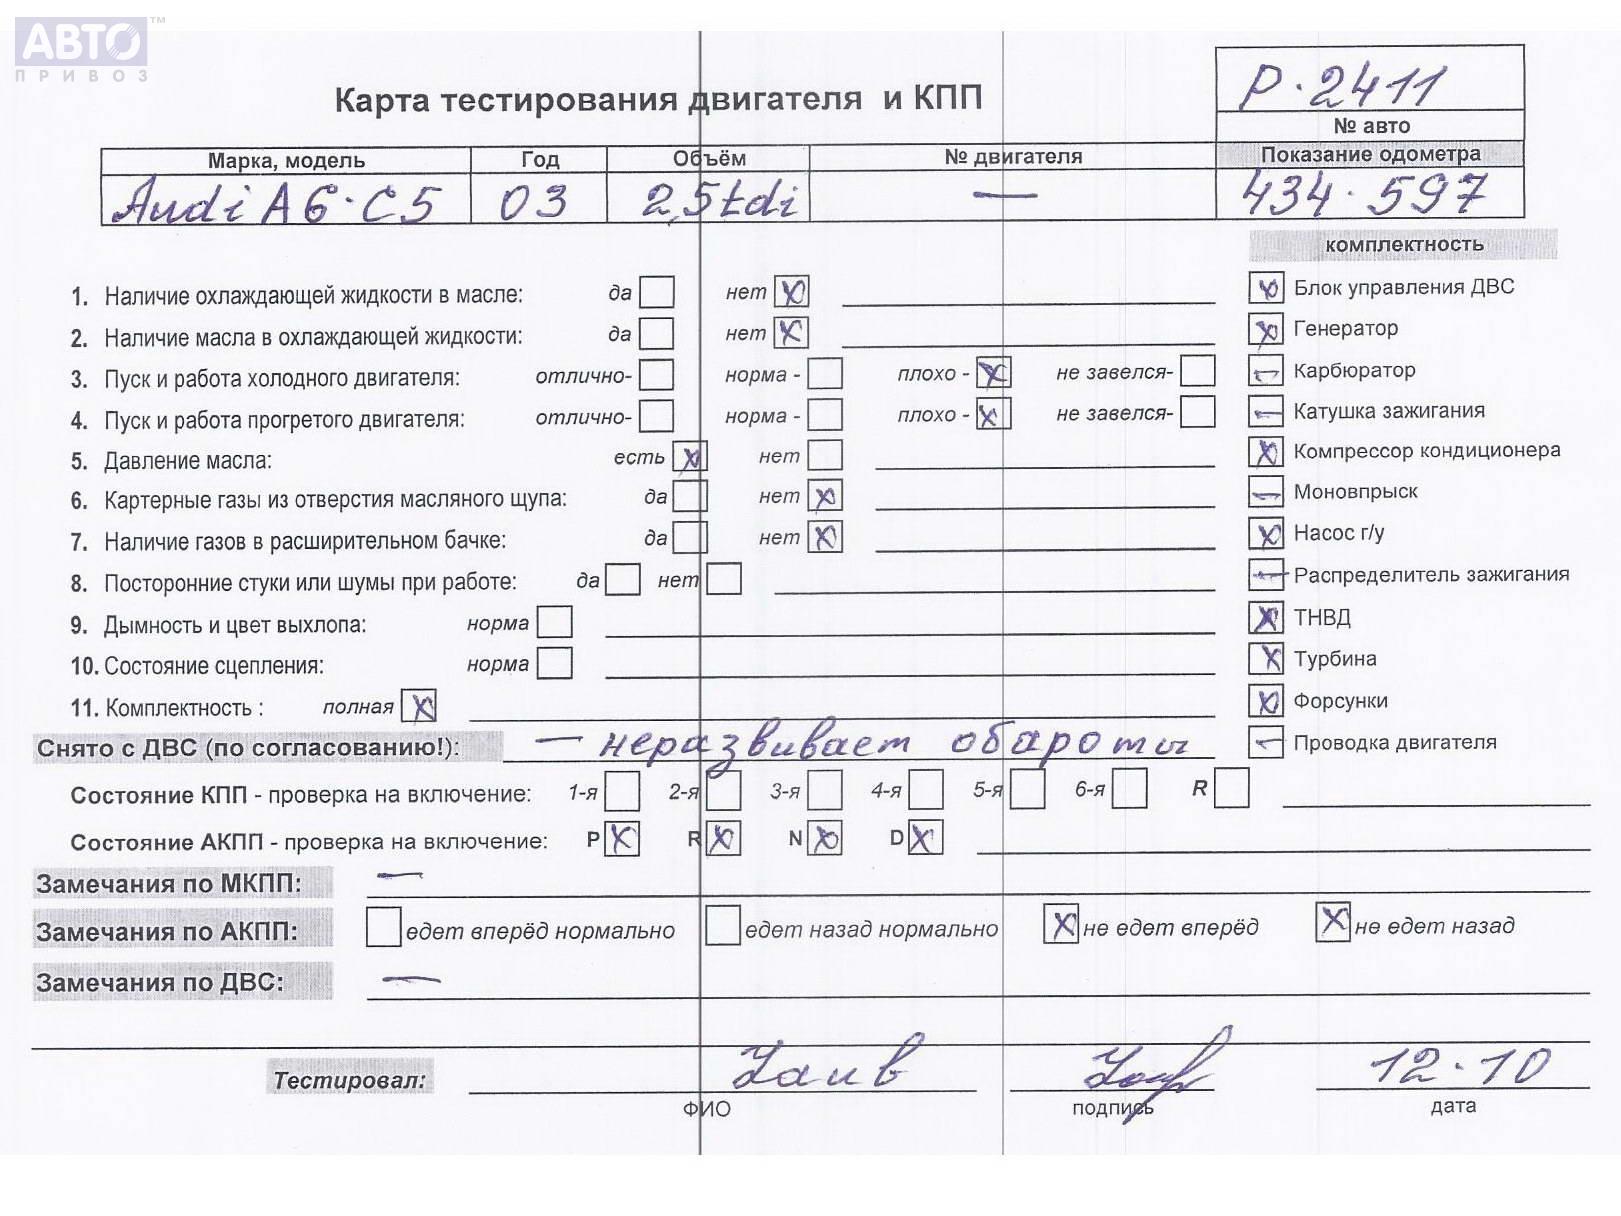 АВТО™
ПРИВОЗ
Карта тестирования двигателя и КПП
Р·2411
№ авто
Марка, модель Год Объём № двигателя Показание одометра
Audi A6·C5 03 2,5tdi — 434·597
комплектность
1. Наличие охлаждающей жидкости в масле: да нет
Блок управления ДВС
2. Наличие масла в охлаждающей жидкости: да нет
Генератор
3. Пуск и работа холодного двигателя: отлично- норма - плохо - не завелся-
Карбюратор
4. Пуск и работа прогретого двигателя: отлично- норма - плохо - не завелся-
Катушка зажигания
5. Давление масла: есть нет
Компрессор кондиционера
6. Картерные газы из отверстия масляного щупа: да нет
Моновпрыск
7. Наличие газов в расширительном бачке: да нет
Насос г/у
8. Посторонние стуки или шумы при работе: да нет
Распределитель зажигания
9. Дымность и цвет выхлопа: норма
ТНВД
10. Состояние сцепления: норма
Турбина
11. Комплектность : полная
Форсунки
Снято с ДВС (по согласованию!): — неразвивает обароты
Проводка двигателя
Состояние КПП - проверка на включение: 1-я 2-я 3-я 4-я 5-я 6-я R
Состояние АКПП - проверка на включение: P R N D
Замечания по МКПП: —
Замечания по АКПП: едет вперёд нормально едет назад нормально не едет вперёд не едет назад
Замечания по ДВС: —
Тестировал: 12·10
ФИО подпись дата